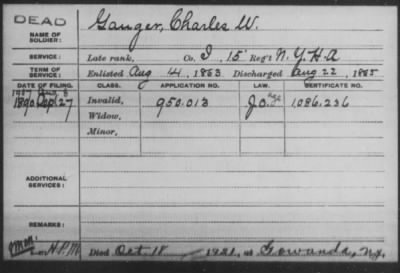 DEAD
NAME OF SOLDIER: Ganger, Charles W.
SERVICE: Late rank, Co. I, 15 Reg't N.Y.H.A
TERM OF SERVICE: Enlisted Aug 14, 1863 Discharged Aug. 22, 1865
DATE OF FILING. CLASS. APPLICATION NO. LAW. CERTIFICATE NO.
1907 Aug. 8
1890 Sep 27 Invalid, 950.013 J.O. 1086.236
Widow,
Minor,
ADDITIONAL SERVICES:
REMARKS:
Died Oct. 18 1921, at Gowanda, N.Y.